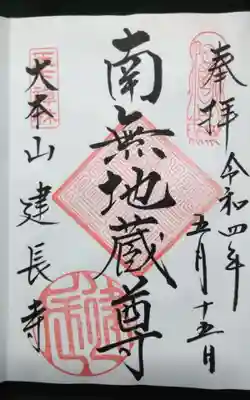 奉拝
令和四年
五月十五日
南無地蔵尊
大本山
建長寺